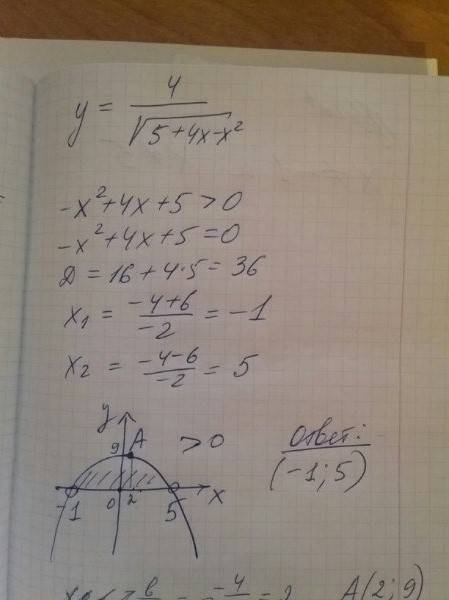 y = 4/√(5+4x-x²)
-x²+4x+5>0
-x²+4x+5=0
Д=16+4·5=36
x₁ = (-4+6)/-2 = -1
x₂ = (-4-6)/-2 = 5
y
9 A >0
-1 0 2 5 x
Ответ:
(-1; 5)
A(2; 9)